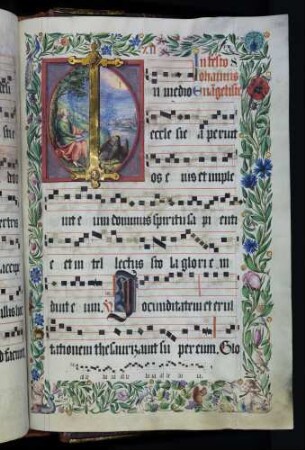 In festo S
Johannis
n medio Evãgelistę
eccle sie a peruit
os e ius et imple
uit e um dominus spiritu sa pi enti
e et in tel lectus sto la glorie in
duit e um. Jocunditatem et exul
tationem thesaurizauit su per eum. Glo